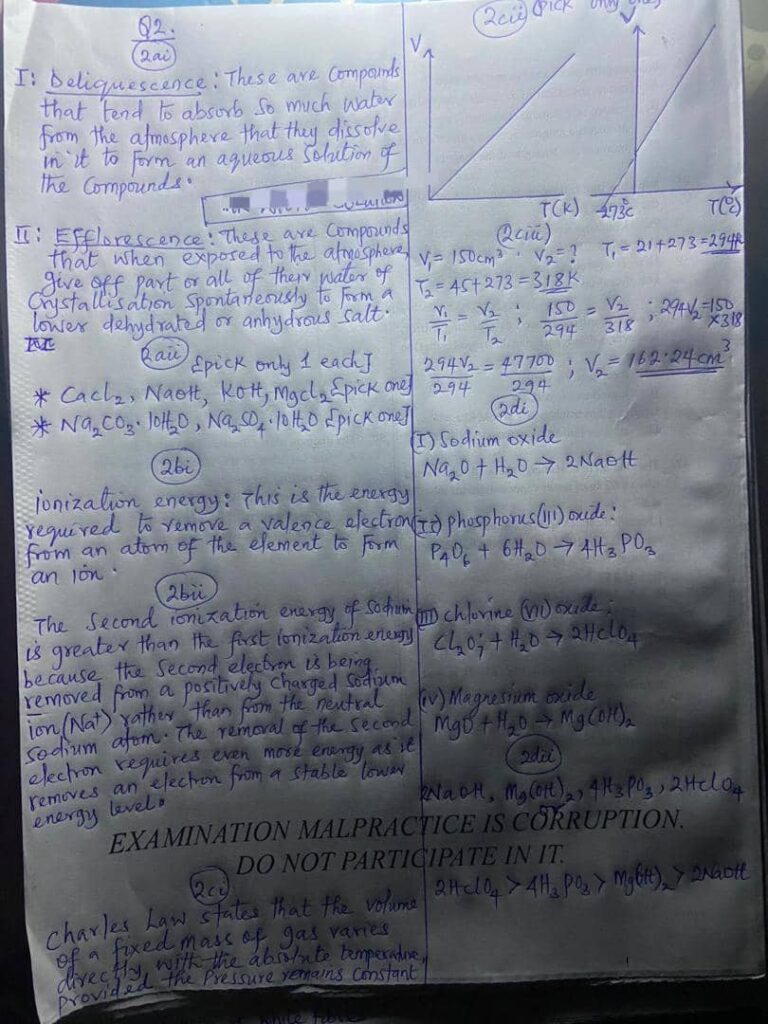 Q2.
2ai
I: Deliquescence: These are compounds
that tend to absorb so much water
from the atmosphere that they dissolve
in it to form an aqueous solution of
the compounds.
II: Efflorescence: These are compounds
that when exposed to the atmosphere,
give off part or all of their water of
crystallisation spontaneously to form a
lower dehydrated or anhydrous salt.
2aii [pick only 1 each]
* CaCl₂, NaOH, KOH, MgCl₂ [pick one]
* Na₂CO₃·10H₂O, Na₂SO₄·10H₂O [pick one]
2bi
ionization energy: This is the energy
required to remove a valence electron
from an atom of the element to form
an ion.
2bii
The second ionization energy of sodium
is greater than the first ionization energy
because the second electron is being
removed from a positively charged sodium
ion (Na⁺) rather than from the neutral
sodium atom. The removal of the second
electron requires even more energy as it
removes an electron from a stable lower
energy level.
EXAMINATION MALPRACTICE IS CORRUPTION.
DO NOT PARTICIPATE IN IT.
2ci
Charles Law states that the volume
of a fixed mass of gas varies
directly with the absolute temperature,
provided the pressure remains constant
2cii (pick only one)
V
V
T(K) -273°C T(°C)
2ciii
V₁ = 150cm³ V₂ = ? T₁ = 21+273 = 294K
T₂ = 45+273 = 318K
V₁/T₁ = V₂/T₂ ; 150/294 = V₂/318 ; 294V₂ = 150 × 318
294V₂/294 = 47700/294 ; V₂ = 162.24cm³
2di
(I) Sodium oxide
Na₂O + H₂O → 2NaOH
(II) phosphorus(III) oxide:
P₄O₆ + 6H₂O → 4H₃PO₃
(III) chlorine (VII) oxide;
Cl₂O₇ + H₂O → 2HClO₄
(iv) Magnesium oxide
MgO + H₂O → Mg(OH)₂
2dii
2NaOH, Mg(OH)₂, 4H₃PO₃, 2HClO₄
2HClO₄ > 4H₃PO₃ > Mg(OH)₂ > 2NaOH